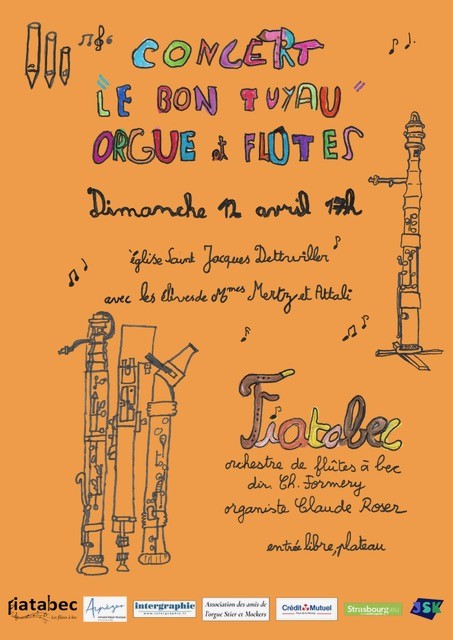 CONCERT
"LE BON TUYAU"
ORGUE et FLÛTES
Dimanche 12 avril 17h
église Saint Jacques Dettwiller
avec les élèves de Mmes Mertz et Attali
Fiatabec
orchestre de flûtes à bec
dir. Ch. Formery
organiste Claude Roser
entrée libre, plateau
fiatabec
les flûtes à bec
Arpèges
intergraphie
Association des amis de
l'orgue Stier et Mockers
Crédit Mutuel
Strasbourg.eu
JSK